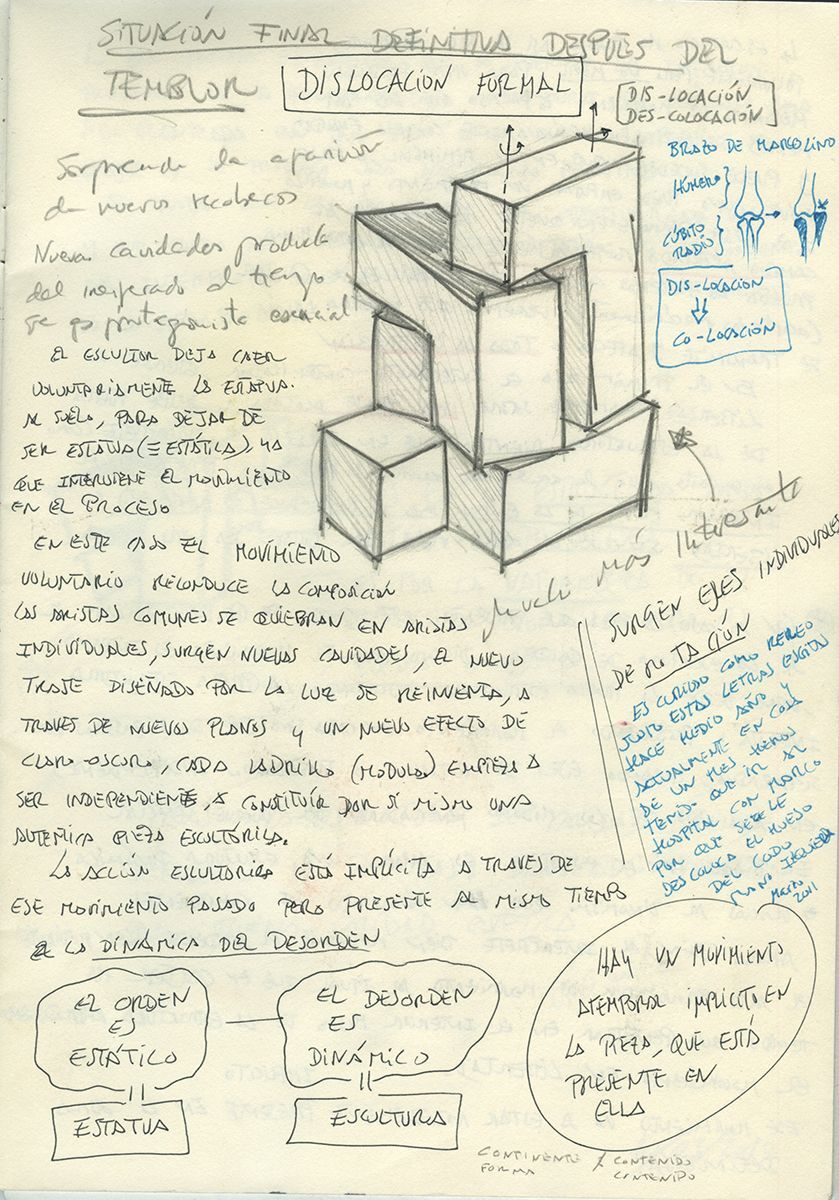 SITUACIÓN FINAL DEFINITIVA DESPUÉS DEL
TEMBLOR
DISLOCACION FORMAL
DIS-LOCACIÓN
DES-COLOCACIÓN
Sorprende la aparición
de nuevos recobecos
Nuevas cavidades producto
del inesperado al tiempo
que protagonista esencial
BRAZO DE MARCOLINO
HÚMERO
CÚBITO
RADIO
DIS-LOCACION
CO-LOCACIÓN
EL ESCULTOR DEJA CAER
VOLUNTARIAMENTE LA ESTATUA
AL SUELO, PARA DEJAR DE
SER ESTATUA (≡ ESTÁTICA), YA
QUE INTERVIENE EL MOVIMIENTO
EN EL PROCESO
EN ESTE CASO EL MOVIMIENTO
VOLUNTARIO RECONDUCE LA COMPOSICIÓN
LAS ARISTAS COMUNES SE QUIEBRAN EN ARISTAS
INDIVIDUALES, SURGEN NUEVAS CAVIDADES, EL NUEVO
TRAJE DISEÑADO POR LA LUZ SE REINVENTA, A
TRAVES DE NUEVOS PLANOS Y UN NUEVO EFECTO DE
CLARO-OSCURO, CADA LADRILLO (MODULO) EMPIEZA A
SER INDEPENDIENTE A CONSTITUÍR POR SÍ MISMO UNA
AUTENTICA PIEZA ESCULTÓRICA.
LA ACCIÓN ESCULTORICA ESTÁ IMPLÍCITA A TRAVES DE
ESE MOVIMIENTO PASADO PERO PRESENTE AL MISMO TIEMPO
LA DINÁMICA DEL DESORDEN
Mucho más Interesante
SURGEN EJES INDIVIDUALES
DE ROTACIÓN
ES CURIOSO COMO RELEO
JUSTO ESTAS LETRAS ESCRITAS
HACE MEDIO AÑO Y
ACTUALMENTE EN COSA
DE UN MES HEMOS
TENIDO QUE IR AL
HOSPITAL CON MARCO
POR QUE SE LE
DESCOLOCA EL HUESO
DEL CODO
MANO IZQUIERDA
2011
EL ORDEN
ES
ESTÁTICO
ESTATUA
EL DESORDEN
ES
DINÁMICO
ESCULTURA
HAY UN MOVIMIENTO
ATEMPORAL IMPLICITO EN
LA PIEZA, QUE ESTÁ
PRESENTE EN
ELLA
CONTINENTE / CONTENIDO
FORMA CONTENIDO